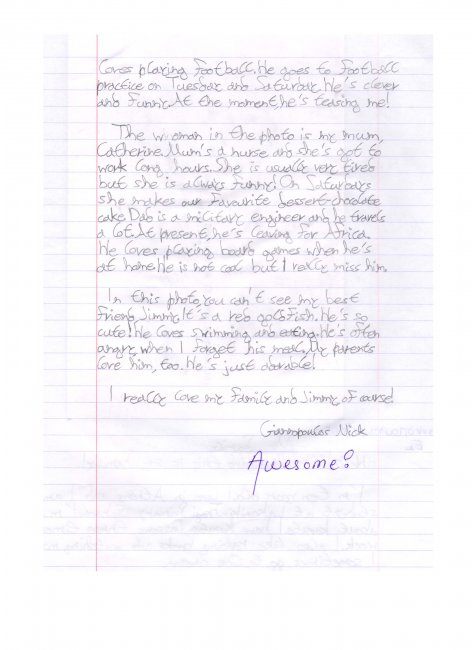 Loves playing football. He goes to football
practice on Tuesday and Saturday. He's clever
and funny. At the moment, he's teasing me!
The woman in the photo is my mum,
Catherine. Mum's a nurse and she's got to
work long hours. She is usually very tired
but she is always funny! On Saturdays
she makes our favourite dessert-chocolate
cake. Dad is a military engineer and he travels
a lot. At present, he's leaving for Africa.
He loves playing board games when he's
at home. He is not cool but I really miss him.
In this photo, you can't see my best
friend, Jimmy. It's a red goldfish. He's so
cute! He loves swimming and eating. He's often
angry when I forget his meal. My parents
love him, too. He's just dorable!
I really love my family and Jimmy of course!
Giannopoulos Nick
Awesome!